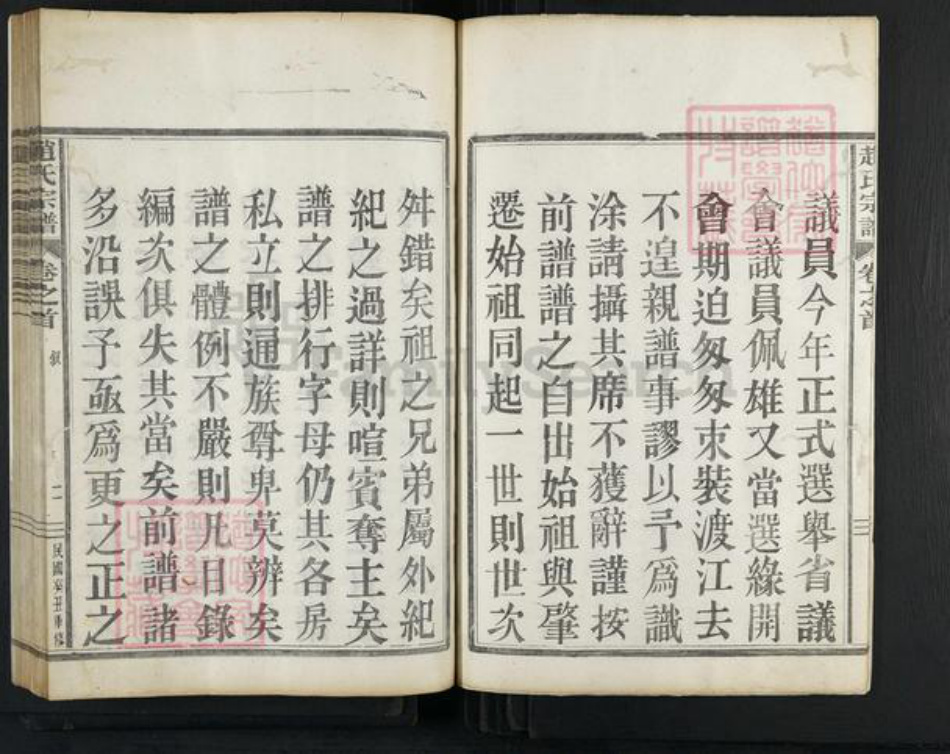 趙氏宗譜 卷之首
議員今年正式選舉省議
會議員佩雄又當選緣開
會期迫匆匆束裝渡江去
不遑親譜事謬以予爲識
涂請攝其席不獲辭謹按
前譜譜之自出始祖與肇
遷始祖同起一世則世次
舛錯矣祖之兄弟屬外紀
紀之過詳則喧賓奪主矣
譜之排行字母仍其各房
私立則通族尊卑莫辨矣
譜之體例不嚴則凡目錄
編次俱失其當矣前譜諸
多沿誤予亟爲更之正之
趙氏宗譜 卷之首 敘 二 民國癸丑重修
FamilySearch